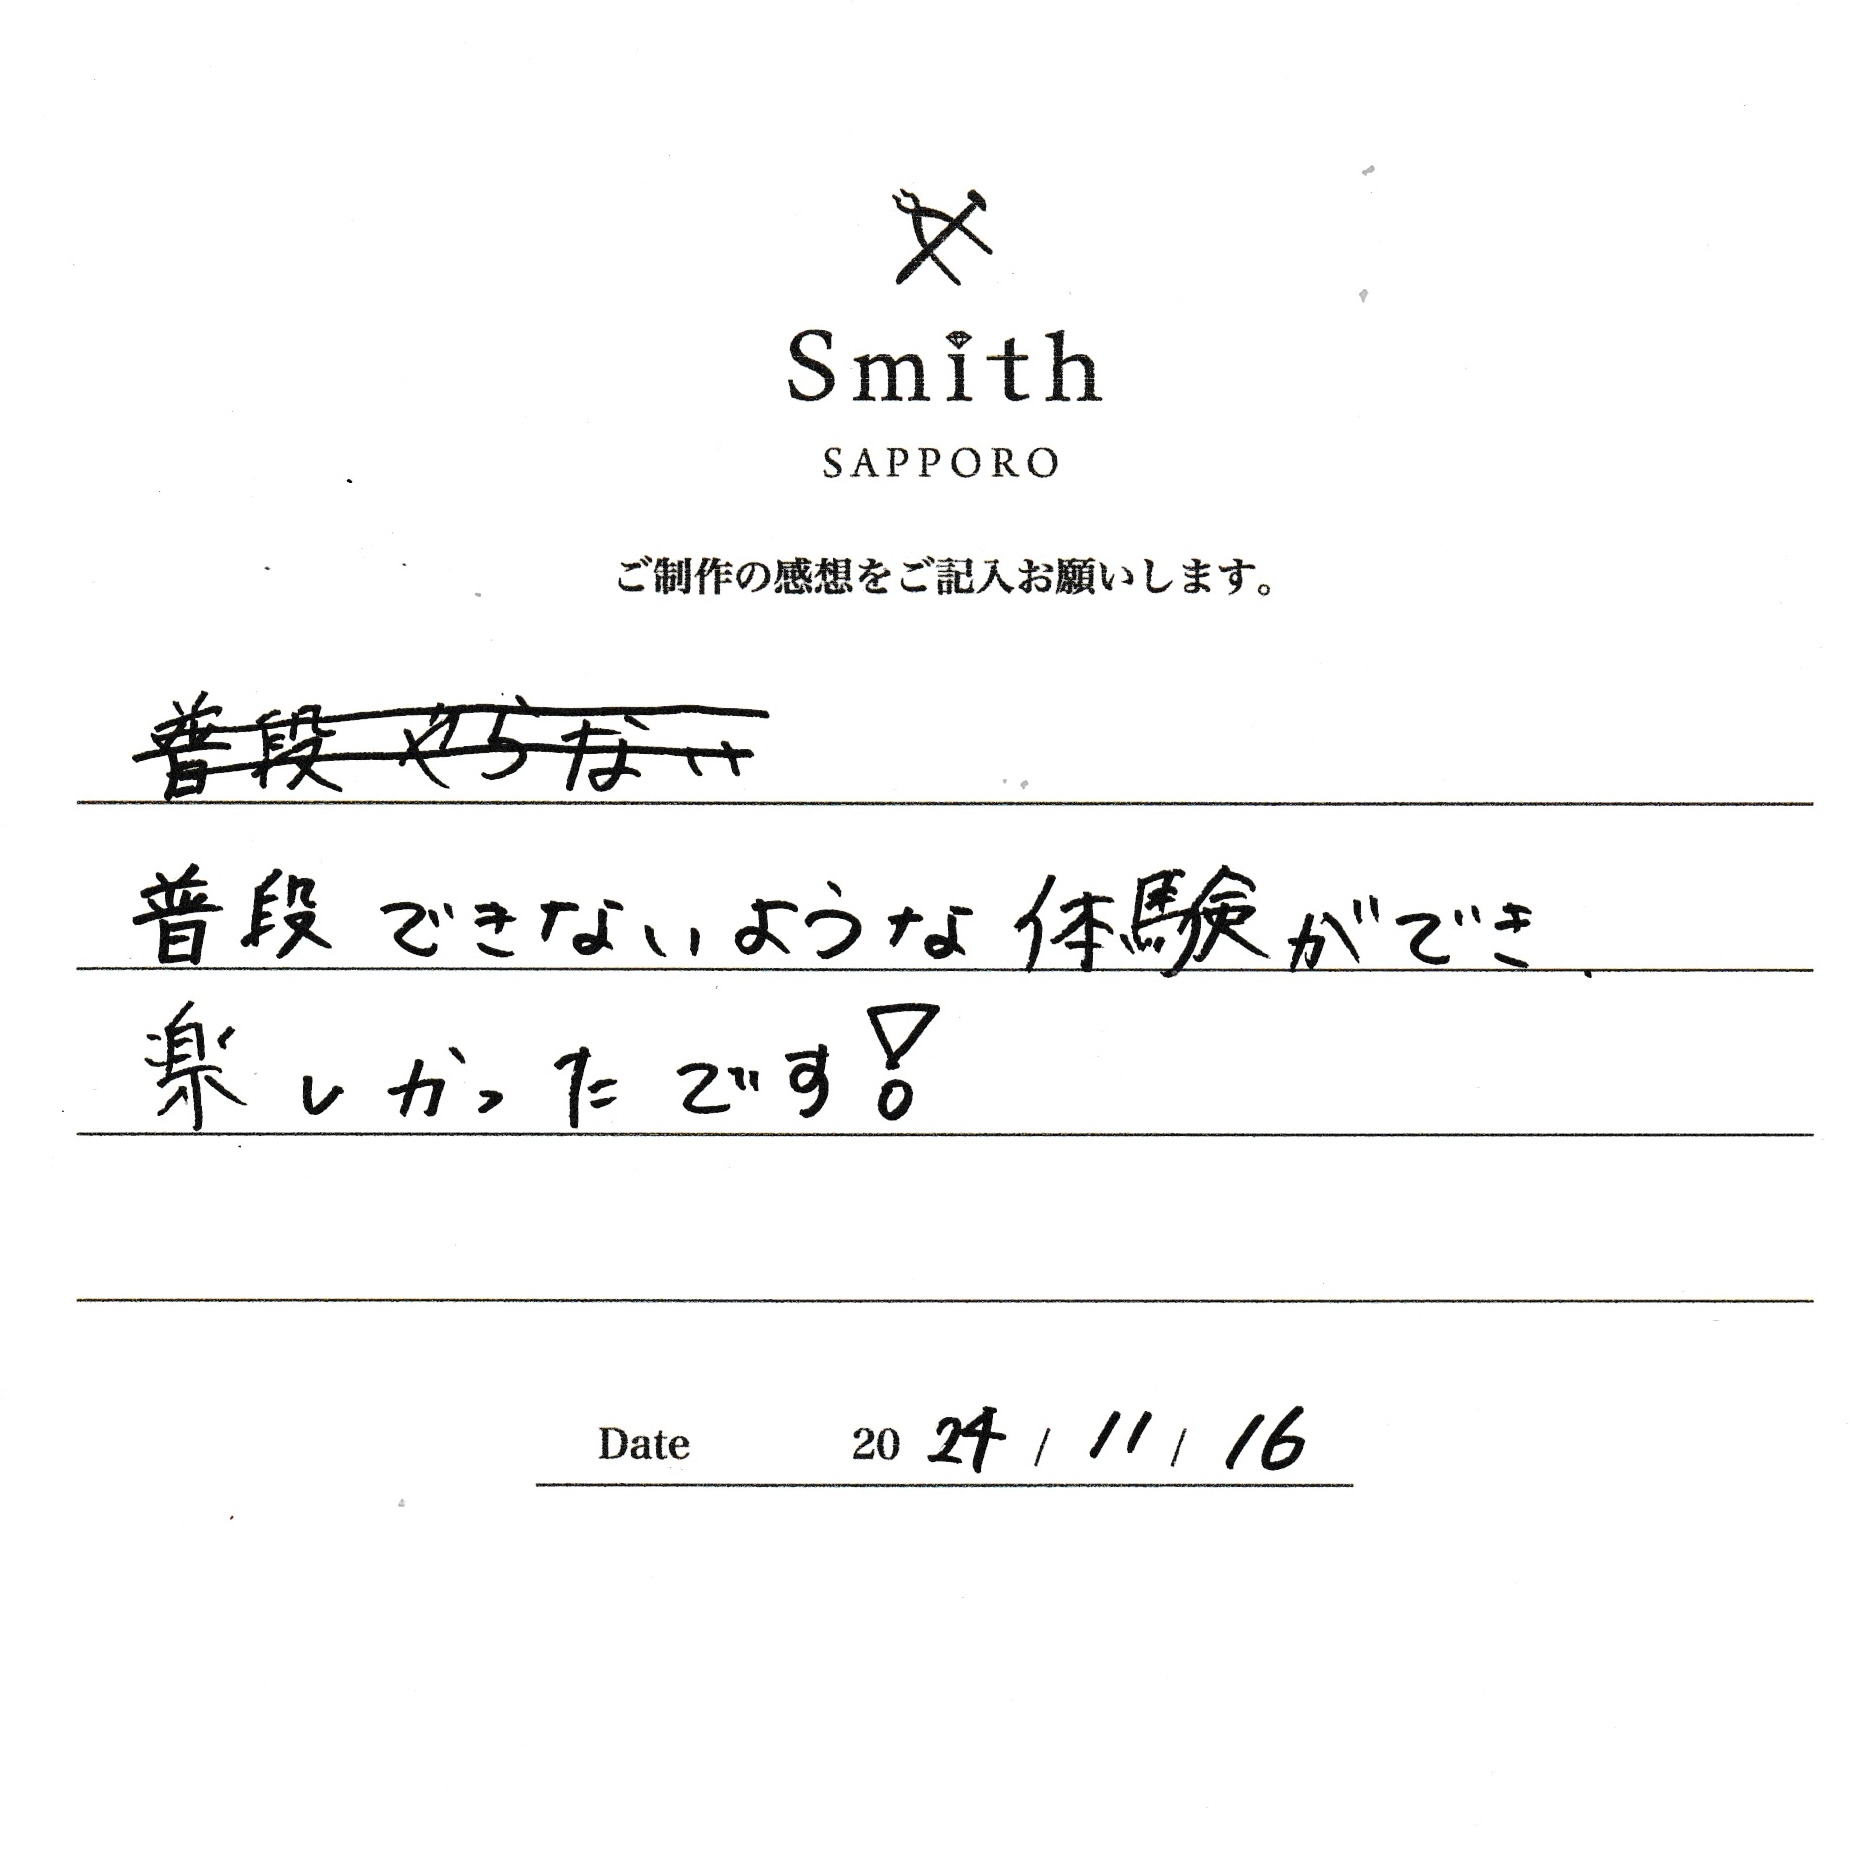 Smith
SAPPORO
ご制作の感想をご記入お願いします。
普段やらない
普段できないような体験ができ
楽しかったです!
Date 2024/11/16